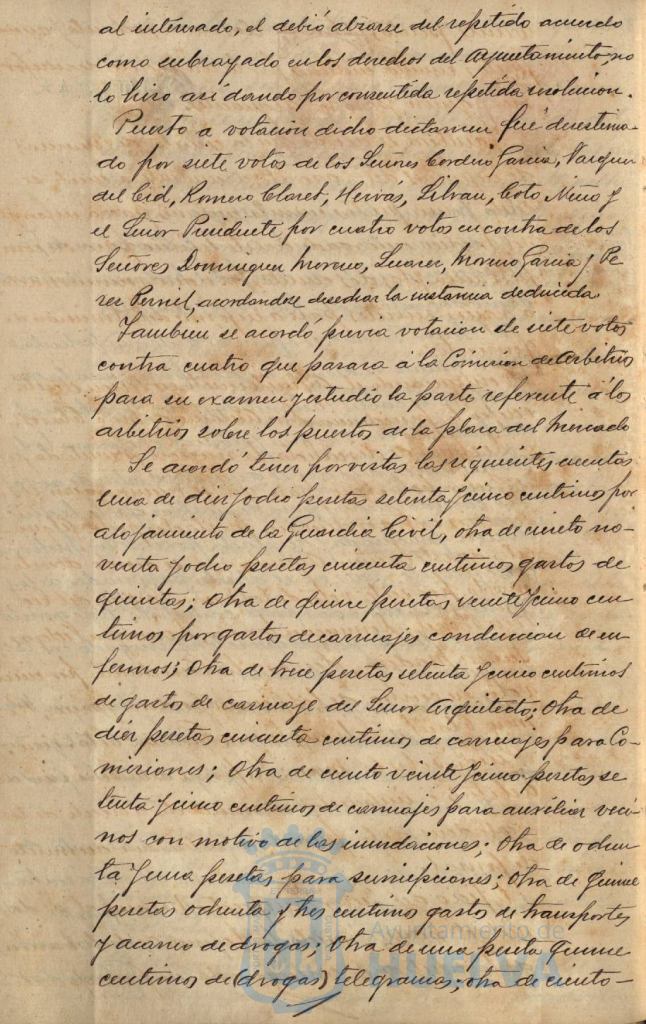 al interesado, el debió alzarse del repetido acuerdo
como subrayado en los derechos del Ayuntamiento, no
lo hizo así dando por consentida repetida resolucion.
Puesto a votacion dicho dictamen fué desestima-
do por siete votos de los Señores Cordero Garcia, Vazquez
del Cid, Romero Claret, Hervás, Silvan, Coto Niño y
el Señor Presidente por cuatro votos en contra de los
Señores Dominguez Moreno, Suarez, Moreno Garcia y Pe
rez Pernil, acordandose desechar la instancia deducida.
Tambien se acordó previa votacion de siete votos
contra cuatro que pasara á la Comision de Arbitrios
para su examen y estudio la parte referente á los
arbitrios sobre los puestos de la plaza del Mercado
Se acordó tener por vistas las siguientes cuentas
una de diez y ocho pesetas setenta y cinco centimos por
alojamiento de la Guardia Civil, otra de ciento no-
venta y ocho pesetas cincuenta centimos gastos de
quintas; Otra de quince pesetas veinte y cinco cen
timos por gastos de carruajes conduccion de en
fermos; Otra de trece pesetas setenta y cinco centimos
de gastos de carruaje del Señor Arquitecto; Otra de
diez pesetas cincuenta centimos de carruajes para Co-
misiones; Otra de ciento veinte y cinco pesetas se
tenta y cinco centimos de carruajes para auxiliar veci
nos con motivo de las inundaciones; Otra de ochen
ta y una pesetas para suscripciones; Otra de quince
pesetas ochenta y tres centimos gastos de transportes
y acarreo de drogas; Otra de una peseta quince
centimos de (drogas) telegramas; otra de ciento-
Ayuntamiento de
HUELVA